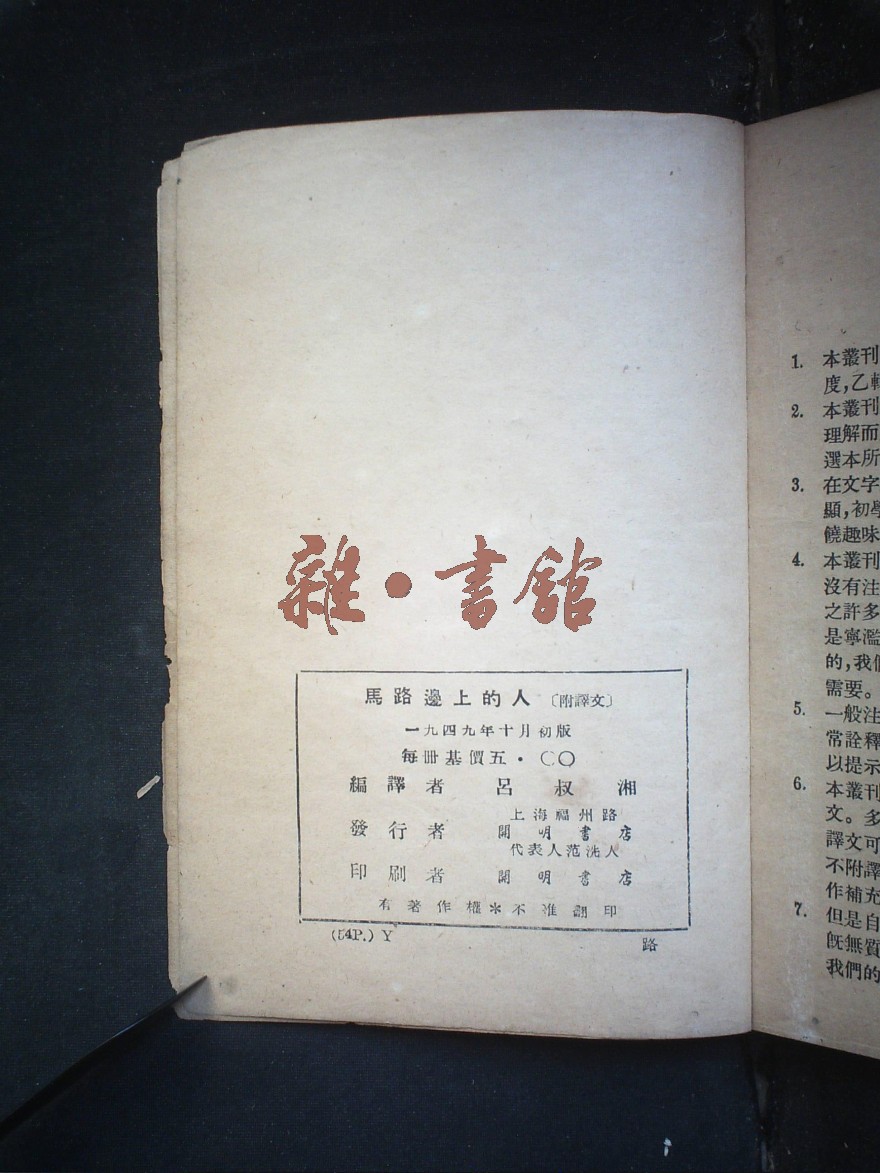 雜·書館
馬路邊上的人〔附譯文〕
一九四九年十月初版
每冊基價五·〇〇
編譯者 呂叔湘
發行者 上海福州路
開明書店
代表人范洗人
印刷者 開明書店
有著作權＊不准翻印
(54P.) Y 路
1. 本叢刊
度,乙輯
2. 本叢刊
理解而
選本所
3. 在文字
顯,初學
饒趣味
4. 本叢刊
沒有注
之許多
是寧濫
的,我們
需要。
5. 一般注
常詮釋
以提示
6. 本叢刊
文。多
譯文可
不附譯
作補充
7. 但是自
旣無質
我們的